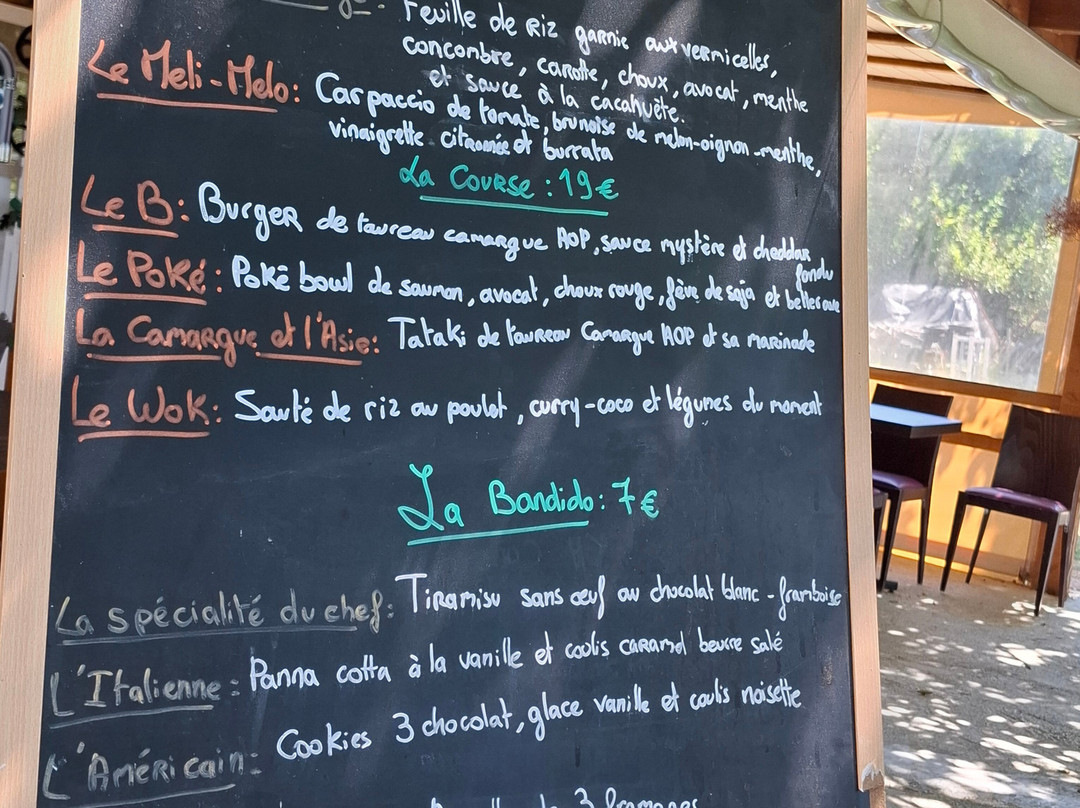 Feuille de Riz garnie aux vermicelles,
concombre, carotte, choux, avocat, menthe
et sauce à la cacahuète.
Le Meli-Melo: Carpaccio de tomate, brunoise de melon-oignon-menthe,
vinaigrette citronnée et burrata
La Course: 19€
Le B: Burger de taureau camargue AOP, sauce mystère et cheddar
fondu
Le Poké: Poké bowl de saumon, avocat, choux rouge, fève de soja et betterave
La Camargue et l'Asie: Tataki de taureau Camargue AOP et sa marinade
Le Wok: Sauté de riz au poulet, curry-coco et légumes du moment
La Bandido: 7€
La spécialité du chef: Tiramisu sans œuf au chocolat blanc-framboise
L'Italienne: Panna cotta à la vanille et coulis caramel beurre salé
L'Américain: Cookies 3 chocolat, glace vanille et coulis noisette
3 fromages